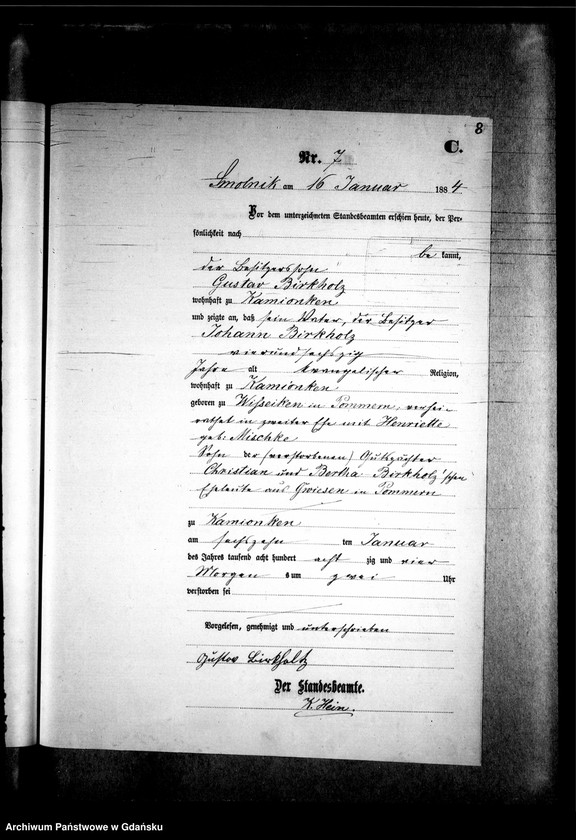 8
C.
Nr. 7
Smolnik am 16 Januar 1884
Vor dem unterzeichneten Standesbeamten erschien heute, der Per-
sönlichkeit nach
be kannt,
der Besitzerssohn
Gustav Birkholz
wohnhaft zu Kamionken
und zeigte an, daß sein Vater, der Besitzer
Johann Birkholz
vierundsechszig
Jahre alt evangelischer Religion,
wohnhaft zu Kamionken
geboren zu in Pommern, verhei-
rathet in zweiter Ehe mit Henriette
geb: Mischke
Sohn der (verstorbenen) Gutspächter
Christian und Bertha Birkholz'schen
Eheleute aus in Pommern
zu Kamionken
am sechszehn ten Januar
des Jahres tausend acht hundert acht zig und vier
Morgens um zwei Uhr
verstorben sei
Vorgelesen, genehmigt und unterschrieben
Gustav Birkholtz
Der Standesbeamte.
K. Hein.
Archiwum Państwowe w Gdańsku